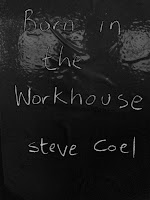 Born in
the
Workhouse
steve Coel